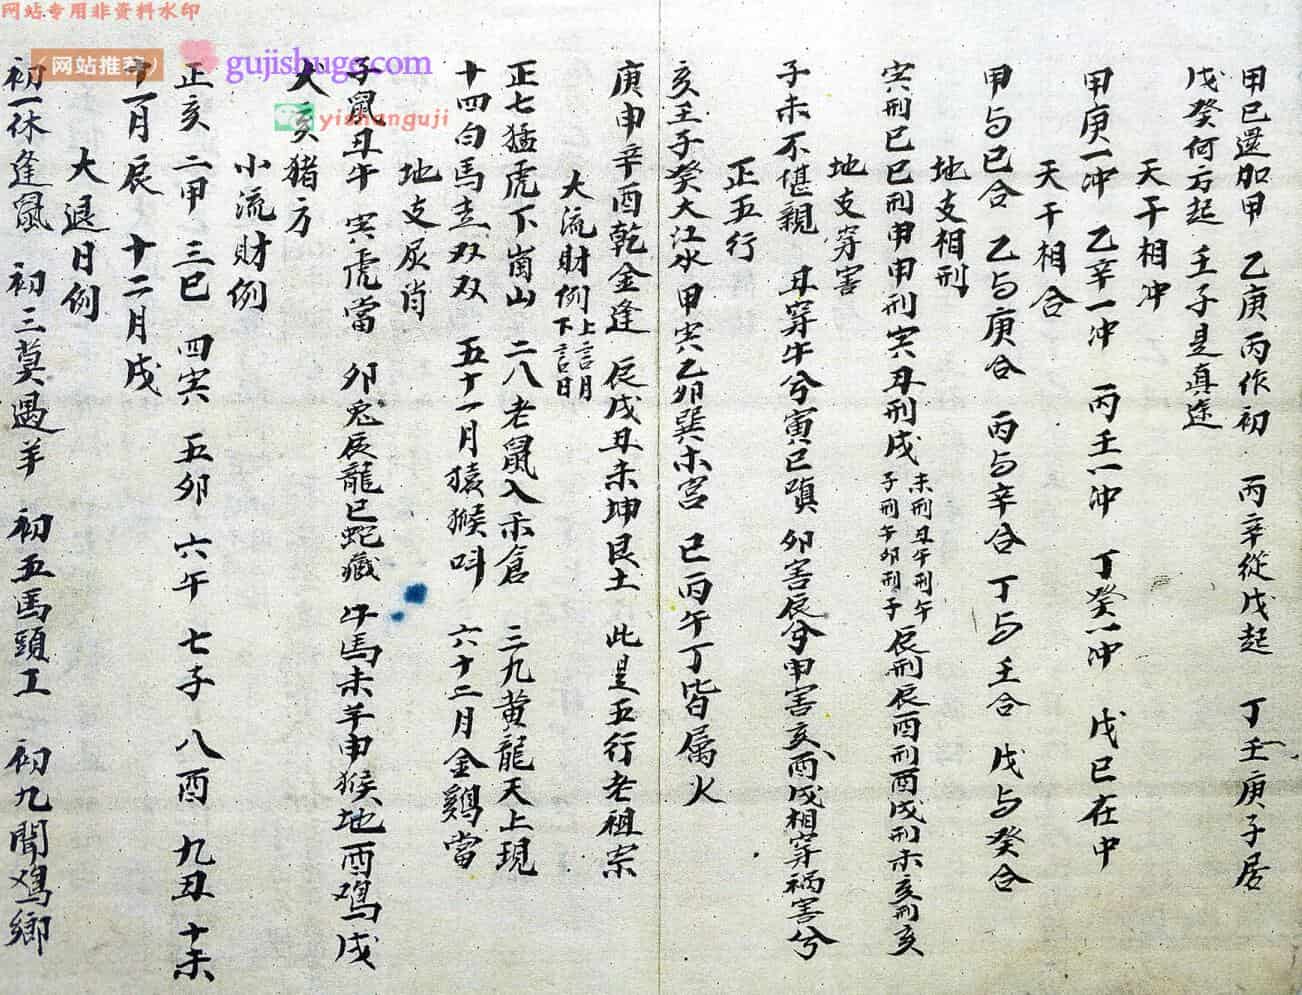 网站专用非资料水印
(网站推荐)
gujishuge.com
yishanguji
甲已還加甲 乙庚丙作初 丙辛從戊起 丁壬庚子居
戊癸何方起 壬子是真途
天干相冲
甲庚一冲 乙辛一冲 丙壬一冲 丁癸一冲 戊已在中
天干相合
甲与已合 乙与庚合 丙与辛合 丁与壬合 戊与癸合
地支相刑
寅刑巳巳刑申申刑寅丑刑戌 未刑丑午刑午 子刑午卯刑子 辰刑辰酉刑酉戌刑未亥刑亥
地支穿害
子未不堪親 丑穿牛兮寅巳嗔 卯害辰兮申害亥酉戌相穿禍害兮
正五行
亥壬子癸大江水 甲寅乙卯巽木宮 巳丙午丁皆属火
庚申辛酉乾金逢 辰戌丑未坤艮土 此是五行老祖宗
大流財例 上言月 下言日
正七猛虎下崗山 二八老鼠入禾倉 三九黄龍天上現
十四白馬走双双 五十一月猿猴叫 六十二月金鷄當
地支灰肖
子鼠丑牛 寅虎當 卯兔辰龍巳蛇藏 午馬未羊申猴地酉鸡戌
犬亥猪方
小流財例
正亥 二甲 三巳 四寅 五卯 六午 七子 八酉 九丑 十未
十一月辰 十二月戌
大退日例
初一休逢鼠 初三莫遇羊 初五馬頭工 初九聞鸡鄉